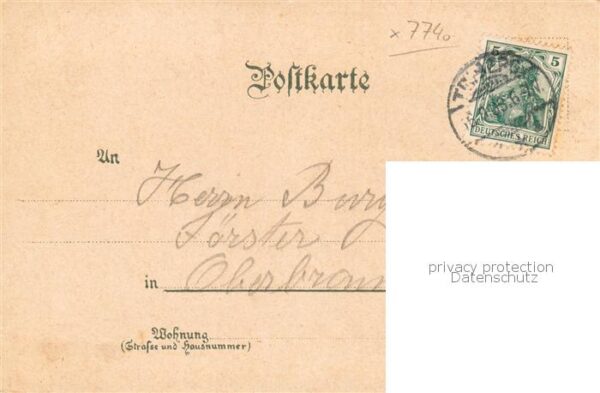 x 7740
5 5
DEUTSCHES REICH
Postkarte
An
Herrn
Förster
in
privacy protection
Datenschutz
Wohnung
(Straße und Hausnummer)